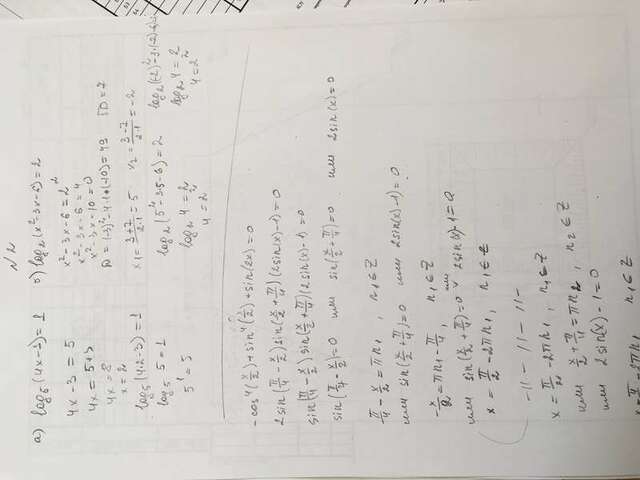 N2
а) log₅(4x-3)=1
4x-3=5
4x=5+3
4x=8
x=2
log₅(4·2-3)=1
log₅ 5=1
5¹=5
б) log₂(x²-3x-6)=2
x²-3x-6=2²
x²-3x-6=4
x²-3x-10=0
D=(-3)²-4·1·(-10)=49 √D=7
x₁=(3+7)/(2·1)=5 x₂=(3-7)/(2·1)=-2
log₂(5²-3·5-6)=2
log₂4=2
4=2²
log₂((-2)²-3·(-2)-6)=2
log₂4=2
4=2²
-cos⁴(x/2)+sin⁴(x/2)+sin(2x)=0
2sin(π/4-x/2)sin(x/2+π/4)(2sin(x)-1)=0
sin(π/4-x/2)sin(x/2+π/4)(2sin(x)-1)=0
sin(π/4-x/2)=0 или sin(x/2+π/4)=0 или 2sin(x)=0
π/4-x/2=πn₁, n₁∈Z
или sin(x/2+π/4)=0 или 2sin(x)-1)=0
-x/2=πn₁-π/4, n₁∈Z
или sin(x/2+π/4)=0 или 2sin(x)-1=0
x=π/2-2πn₁, n₁∈Z
-||- ||- ||-
x=π/2-2πn₁, n₁∈Z
или x/2+π/4=πn₂, n₂∈Z
или 2sin(x)-1=0
x=π/2-2πn₁ n₁∈Z